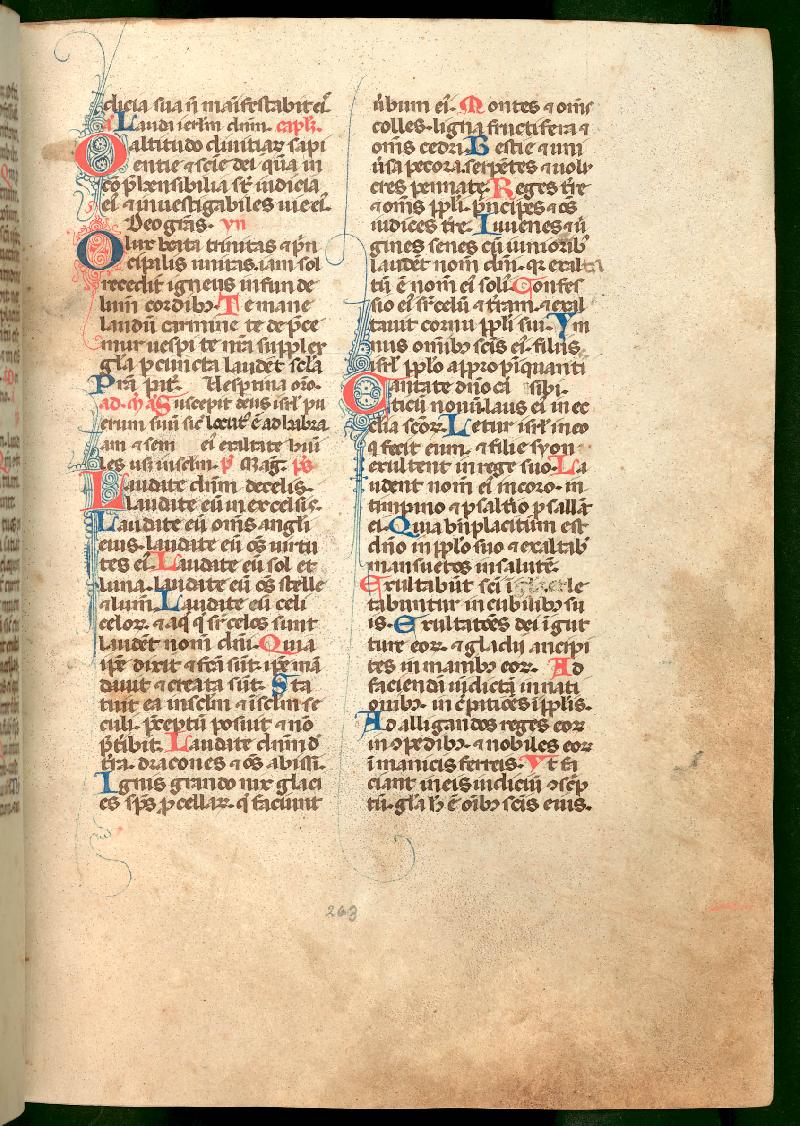 dicia sua nō manifestabit ei.
Lauda ierlm dnm. capl.
O altitudo divitiar sapi
entie ⁊ scie dei qua in
cōp̄hensibilia st iudicia
ei ⁊ investigabiles vie ei.
Deo grās. yn
O lux beata trinitas ⁊ pn
cipalis unitas. iam sol
recedit igneus infunde
lumē cordibꝫ. Te mane
laudū carmine te dep̄ce
mur vespi te nrā supplex
glā p cuncta laudēt sclā
Prī pnt. Vespina orō.
ad. mag Suscepit deus isrl pu
erum suū sic locut ē ad habra
am ⁊ sem ei exaltate huī
les usq inselm. p̄ Mag. ps
Laudate dnm de celis.
Laudate eū in excelsis.
Laudate eū oms angli
eius. laudate eū os virtu
tes ei. Laudate eū sol et
luna. laudate eū os stelle
⁊ lum. Laudate eū celi
celor. ⁊ aq q sr celos sunt
laudēt nom dni. Quia
ipe dixit ⁊ fcā sūt. ipe mā
davit ⁊ creata sūt. Sta
tuit ea inselm ⁊ iselm se
culi. p̄ceptū posuit ⁊ nō
p̄tibit. Laudate dnm d
tra. dracones ⁊ os abissi.
Ignis grando nix glaci
es sps pcellar. q faciunt
ūbum ei. Montes ⁊ oms
colles. ligna fructifera ⁊
oms cedri. Bestie ⁊ uni
ūsa pecora. serpētes ⁊ volu
cres pennate. Reges tre
⁊ oms ppli. pncipes ⁊ os
iudices tre. Iuvenes ⁊ ū
gines senes cū iuniorib
laudēt nom dni. qr exalta
tū ē nom ei soli. Confes
sio ei sr celū ⁊ tram. ⁊ exal
tavit cornu ppli sui. Ym
nus omibꝫ scis ei. filiis
isrl pplo appropīquanti
Cantate dno cā sibi.
ticū novū. laus ei in ec
clia scor. Letur isrl in eo
q fecit eum. ⁊ filie syon
exultent in rege suo. La
udent nom ei in coro. in
timpano ⁊ psaltio psallāt
ei. Quia bnplacitum est
dno in pplo suo ⁊ exaltab
mansuetos in salutē.
Exultabūt sci le
tabuntur in cubilibꝫ su
is. Exultatōes dei ī gut
ture eor. ⁊ gladii ancipi
tes in manibꝫ eor. Ad
faciendā vīdictā in nati
onibꝫ. īcrēpitōes ī pplis.
Ad alligandos reges eor
in ꝯpedibꝫ. ⁊ nobiles eor
ī manicis ferreis. Vt fa
ciant in eis iudiciū ꝯscp
tū. gla h ē oībꝫ scis eius.
263